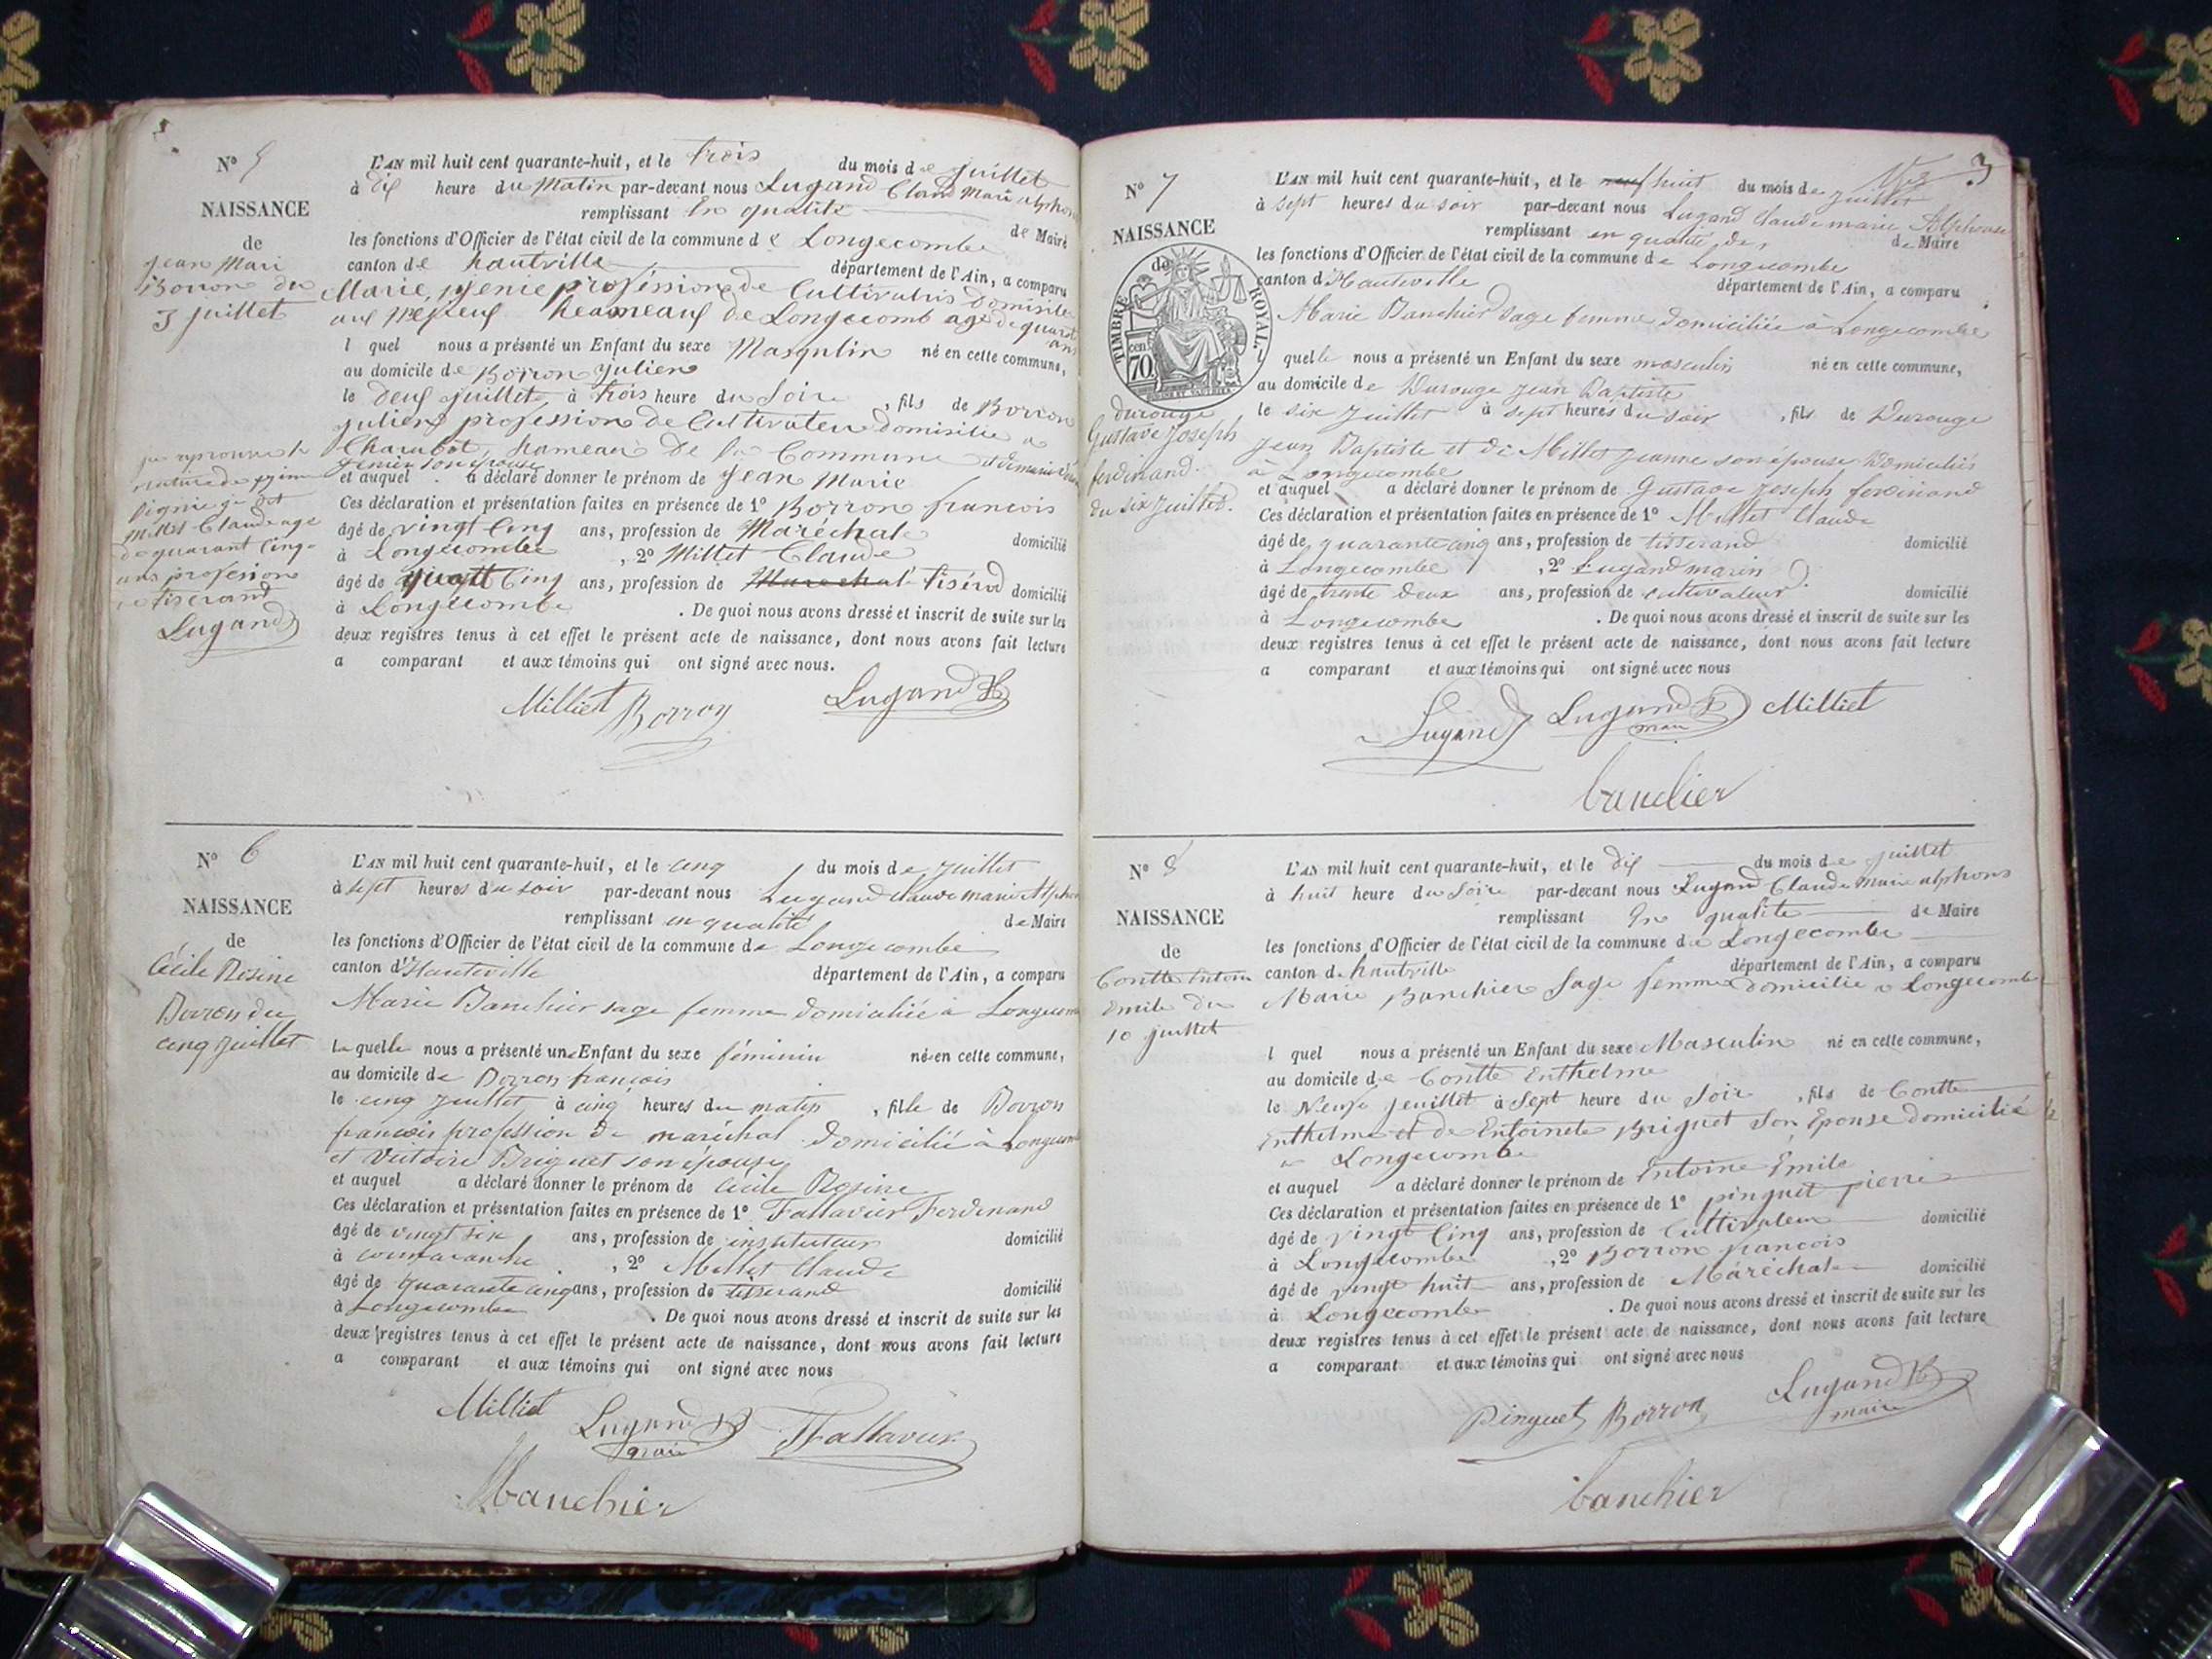 N° 5
NAISSANCE
de
jean Mari
Borron du
3 juillet
L'AN mil huit cent quarante-huit, et le trois du mois de juillet
à dix heure du Matin par-devant nous Lugand Claud Marie alphon
remplissant En qualité de Maire
les fonctions d'Officier de l'état civil de la commune de Longecombe
canton de hautville département de l'Ain, a comparu
Marie, profession de Cultivatris domisile
heameaux de Longecomb agé de quarant
ans
l quel nous a présenté un Enfant du sexe Masqulin né en cette commune,
au domicile de Borron Julien
le deux juillet, à trois heure du Soire, fils de Borron
julien profession de Cultivateur domisilié a
Charabot, hameau De la Commune
son épouse
et auquel a déclaré donner le prénom de Jean Marie
Ces déclaration et présentation faites en présence de 1° Borron francois
âgé de vingt Cinq ans, profession de Maréchal domicilié
à Longecombe, 2° Millet Claude
âgé de Cinq ans, profession de Marechal tisérod domicilié
à Longecombe. De quoi nous avons dressé et inscrit de suite sur les
deux registres tenus à cet effet le présent acte de naissance, dont nous avons fait lecture
a comparant et aux témoins qui ont signé avec nous.
Claude age
de quarant Cinq
ans profesion
de tiserand
Lugand
Milliet Borron Lugand
N° 6
NAISSANCE
de
Cécile Rosine
Borron du
cinq juillet
L'AN mil huit cent quarante-huit, et le cinq du mois de juillet
à sept heures du soir par-devant nous Lugand Claude marie Alphon
remplissant en qualité de Maire
les fonctions d'Officier de l'état civil de la commune de Longecombe
canton d'Hauteville département de l'Ain, a comparu
Marie Banchier sage femme domiciliée à Longecom
La quelle nous a présenté une Enfant du sexe féminin née en cette commune,
au domicile de Borron francois
le cinq juillet à cinq heures du matin, fille de Borron
francois profession de maréchal domicilié à Longecom
et Victoire Briguet son épouse
et auquel a déclaré donner le prénom de Cécile Rosine
Ces déclaration et présentation faites en présence de 1° Fallavier Ferdinand
âgé de vingt six ans, profession de instituteur domicilié
à cormaranche, 2° Millet Claude
âgé de quarante cinq ans, profession de tisserand domicilié
à Longecombe. De quoi nous avons dressé et inscrit de suite sur les
deux registres tenus à cet effet le présent acte de naissance, dont nous avons fait lecture
a comparant et aux témoins qui ont signé avec nous
Milliet Lugand Fallavier
maire
banchier
3
N° 7
NAISSANCE
de
TIMBRE ROYAL.
cen
70
durouge
Gustave Joseph
ferdinand
du six juillet.
L'AN mil huit cent quarante-huit, et le neuf huit du mois de juillet
à sept heures du soir par-devant nous Lugand Claude marie Alphonse
remplissant en qualité de, de Maire
les fonctions d'Officier de l'état civil de la commune de Longecombe
canton d'Hauteville département de l'Ain, a comparu
Marie Banchier sage femme domiciliée à Longecombe
quelle nous a présenté un Enfant du sexe masculin né en cette commune,
au domicile de Durouge Jean Baptiste
le six juillet à sept heures du soir, fils de Durouge
Jean Baptiste et de Millet Jeanne son épouse Domiciliés
à Longecombe
et auquel a déclaré donner le prénom de Gustave Joseph ferdinand
Ces déclaration et présentation faites en présence de 1° Millet Claude
âgé de quarante cinq ans, profession de tisserand domicilié
à Longecombe, 2° Lugand marin
âgé de trente deux ans, profession de cultivateur domicilié
à Longecombe. De quoi nous avons dressé et inscrit de suite sur les
deux registres tenus à cet effet le présent acte de naissance, dont nous avons fait lecture
a comparant et aux témoins qui ont signé avec nous
Lugand Lugand Milliet
maire
banchier
N° 8
NAISSANCE
de
Contte Entoine
Emile du
10 juillet
L'AN mil huit cent quarante-huit, et le dix du mois de juillet
à huit heure du Soire par-devant nous Lugand Claude Marie alphons
remplissant En qualité de Maire
les fonctions d'Officier de l'état civil de la commune de Longecombe
canton de hautville département de l'Ain, a comparu
Marie Banchier Sage femme domicilié a Longecombe
l quel nous a présenté un Enfant du sexe Masculin né en cette commune,
au domicile de Contte Enthelme
le Neufe jeuillet à Sept heure du Soire, fils de Contte
Enthelme et de Entoinete Briguet Son Epouse domicilié
a Longecombe
et auquel a déclaré donner le prénom de Entoine Emile
Ces déclaration et présentation faites en présence de 1° pinguet pierre
âgé de vingt Cinq ans, profession de Cultivateur domicilié
à Longecombe, 2° Borron francois
âgé de vingt huit ans, profession de Maréchal domicilié
à Longecombe. De quoi nous avons dressé et inscrit de suite sur les
deux registres tenus à cet effet le présent acte de naissance, dont nous avons fait lecture
a comparant et aux témoins qui ont signé avec nous
Pinguet Borron Lugand
maire
banchier